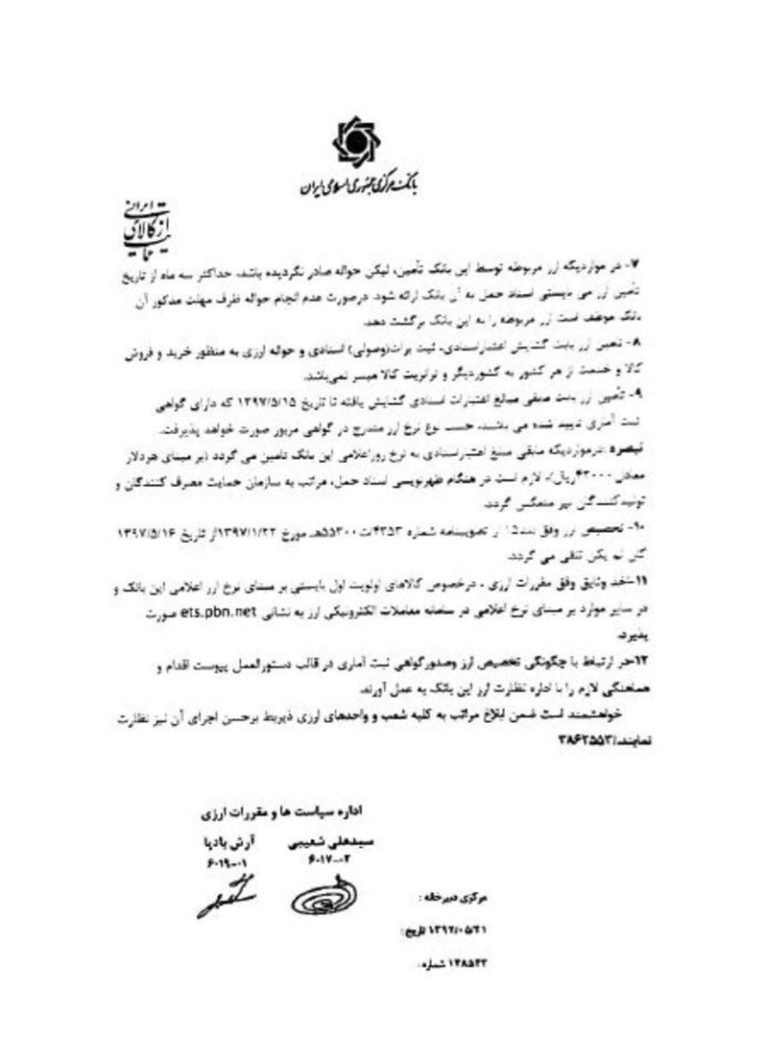 بانک مرکزی جمهوری اسلامی ایران
حمایت از کالای ایرانی
۷- در مواردیکه ارز مربوطه توسط این بانک تأمین، لیکن حواله صادر نگردیده باشد، حداکثر سه ماه از تاریخ
تأمین ارز می بایستی اسناد حمل به آن بانک ارائه شود. درصورت عدم انجام حواله ظرف مهلت مذکور آن
بانک موظف است ارز مربوطه را به این بانک برگشت دهد.
۸- تامین ارز بابت گشایش اعتباراسنادی، ثبت برات(وصولی) اسنادی و حواله ارزی به منظور خرید و فروش
کالا و خدمت از هر کشور به کشوردیگر و ترانزیت کالا میسر نمی‌باشد.
۹- تأمین ارز بابت مابقی مبالغ اعتبارات اسنادی گشایش یافته تا تاریخ ۱۳۹۷/۵/۱۵ که دارای گواهی
ثبت آماری تایید شده می باشند، حسب نوع نرخ ارز مندرج در گواهی مزبور صورت خواهد پذیرفت.
تبصره :درمواردیکه مابقی مبلغ اعتباراسنادی به نرخ روزاعلامی این بانک تامین می گردد (بر مبنای هردلار
معادل ۴۲۰۰۰ریال)، لازم است در هنگام ظهرنویسی اسناد حمل، مراتب به سازمان حمایت مصرف کنندگان و
تولیدکنندگان نیز منعکس گردد.
۱۰- تخصیص ارز وفق بند۱۵ از تصویبنامه شماره ۴۳۵۳/ت۵۵۳۰۰هـ مورخ ۱۳۹۷/۱/۲۲از تاریخ ۱۳۹۷/۵/۱۶
کان لم یکن تلقی می گردد.
۱۱-اخذ وثایق وفق مقررات ارزی ، درخصوص کالاهای اولویت اول بایستی بر مبنای نرخ ارز اعلامی این بانک و
در سایر موارد بر مبنای نرخ اعلامی در سامانه معاملات الکترونیکی ارز به نشانی ets.pbn.net صورت
پذیرد.
۱۲-در ارتباط با چگونگی تخصیص ارز وصدورگواهی ثبت آماری در قالب دستورالعمل پیوست اقدام و
هماهنگی لازم را با اداره نظارت ارز این بانک به عمل آورند.
خواهشمند است ضمن ابلاغ مراتب به کلیه شعب و واحدهای ارزی ذیربط برحسن اجرای آن نیز نظارت
نمایند./۳۸۶۲۵۵۳
اداره سیاست ها و مقررات ارزی
سیدعلی شعیبی آرش بادپا
۶۰۱۷-۰۲ ۶۰۱۹-۰۱
مرکزی دبیرخانه :
۱۳۹۷/۰۵/۲۱ تاریخ:
۱۴۸۵۴۳ شماره: